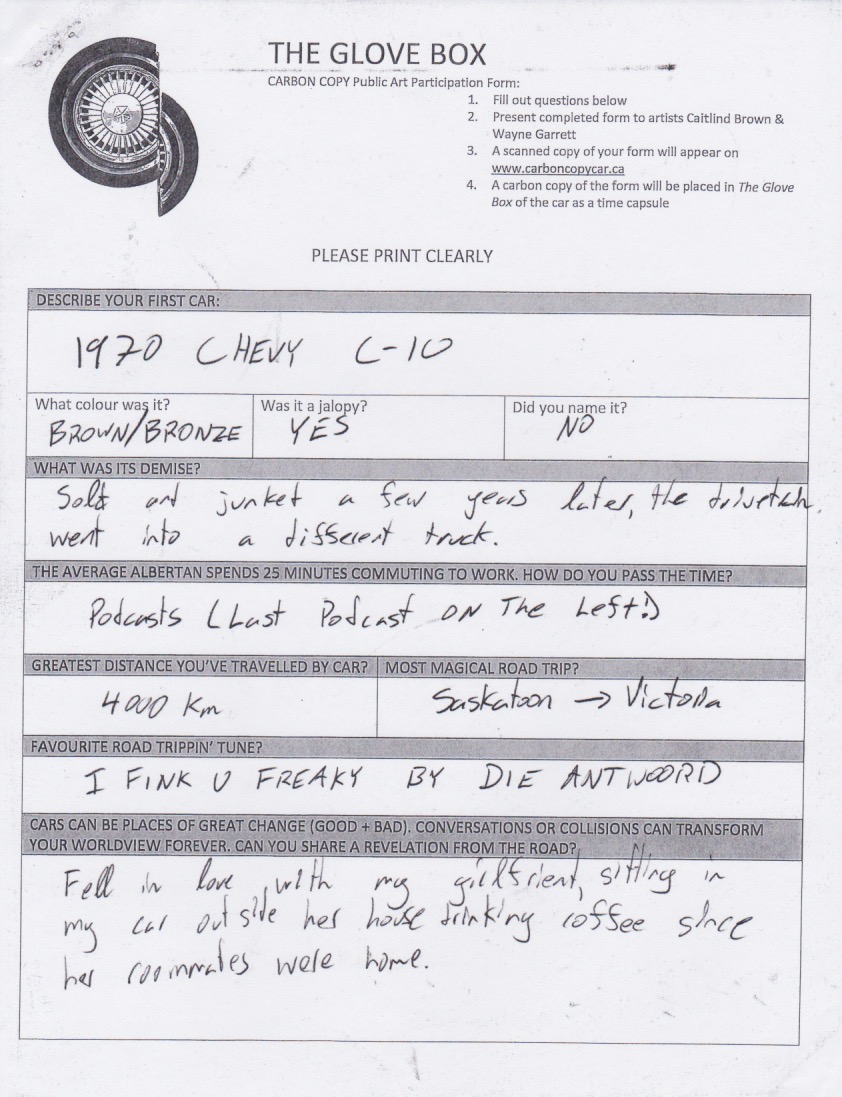 THE GLOVE BOX
CARBON COPY Public Art Participation Form:
1. Fill out questions below
2. Present completed form to artists Caitlind Brown &
Wayne Garrett
3. A scanned copy of your form will appear on
www.carboncopycar.ca
4. A carbon copy of the form will be placed in The Glove
Box of the car as a time capsule
PLEASE PRINT CLEARLY
DESCRIBE YOUR FIRST CAR:
1970 CHEVY C-10
What colour was it?
BROWN/BRONZE
Was it a jalopy?
YES
Did you name it?
NO
WHAT WAS ITS DEMISE?
Sold and junket a few years later, the drivetrain
went into a different truck.
THE AVERAGE ALBERTAN SPENDS 25 MINUTES COMMUTING TO WORK. HOW DO YOU PASS THE TIME?
Podcasts (Last Podcast ON The Left!)
GREATEST DISTANCE YOU'VE TRAVELLED BY CAR?
4000 Km
MOST MAGICAL ROAD TRIP?
Saskatoon → Victoria
FAVOURITE ROAD TRIPPIN' TUNE?
I FINK U FREAKY BY DIE ANTWOORD
CARS CAN BE PLACES OF GREAT CHANGE (GOOD + BAD). CONVERSATIONS OR COLLISIONS CAN TRANSFORM
YOUR WORLDVIEW FOREVER. CAN YOU SHARE A REVELATION FROM THE ROAD?
Fell in love with my girlfrient, sitting in
my car outside her house drinking coffee since
her roommates were home.